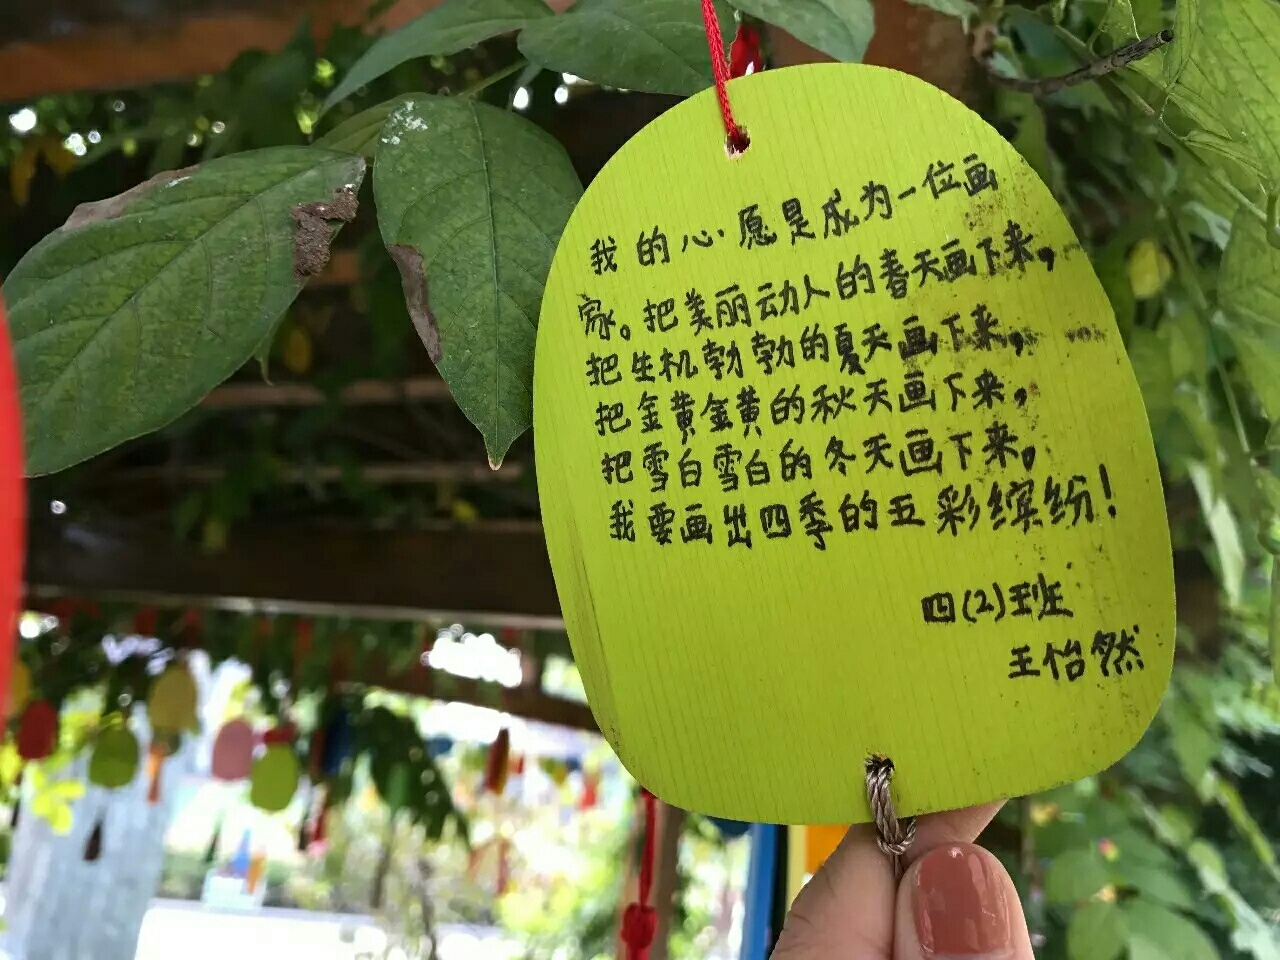 我的心愿是成为一位画
家。把美丽动人的春天画下来，
把生机勃勃的夏天画下来，
把金黄金黄的秋天画下来，
把雪白雪白的冬天画下来，
我要画出四季的五彩缤纷！
四(2)班
王怡然